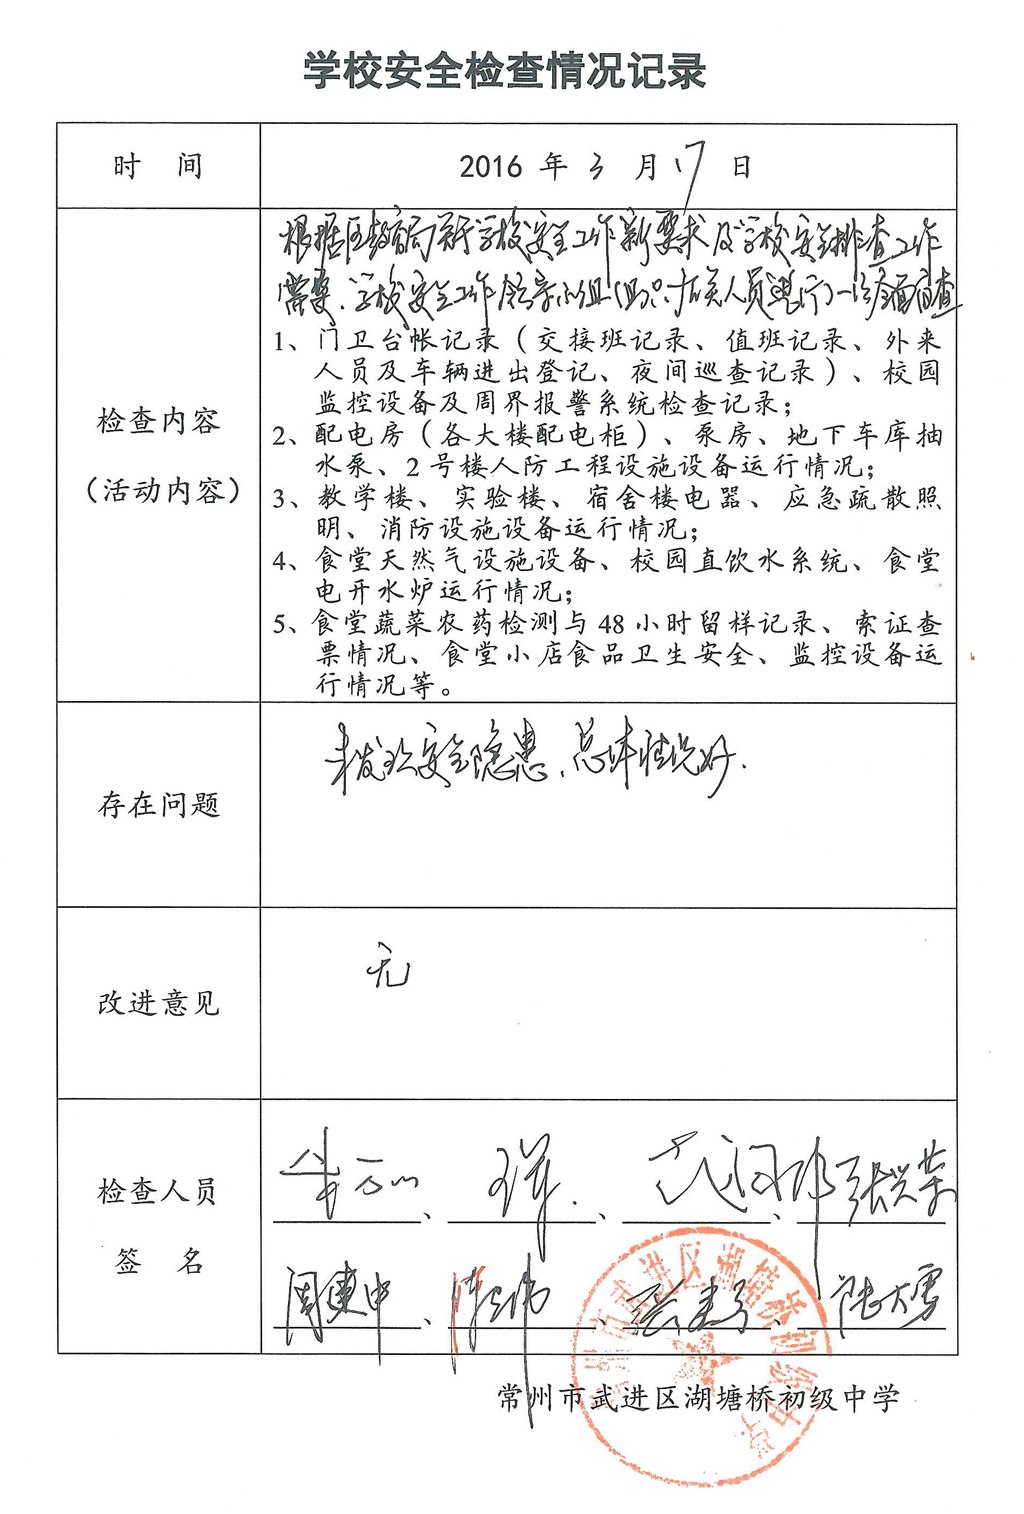 学校安全检查情况记录
时 间
2016 年 3 月 17 日
根据区教育局关于学校安全工作新要求及学校安全排查工作
需要，学校安全工作领导小组组织有关人员进行一次全面自查
检查内容
（活动内容）
1、门卫台帐记录（交接班记录、值班记录、外来
人员及车辆进出登记、夜间巡查记录）、校园
监控设备及周界报警系统检查记录；
2、配电房（各大楼配电柜）、泵房、地下车库抽
水泵、2 号楼人防工程设施设备运行情况；
3、教学楼、实验楼、宿舍楼电器、应急疏散照
明、消防设施设备运行情况；
4、食堂天然气设施设备、校园直饮水系统、食堂
电开水炉运行情况；
5、食堂蔬菜农药检测与 48 小时留样记录、索证查
票情况、食堂小店食品卫生安全、监控设备运
行情况等。
存在问题
未发现安全隐患，总体情况好.
改进意见
无
检查人员
签 名
、 、 、 张兴荣
周建中 、 、 、
常州市武进区湖塘桥初级中学
常州市武进区湖塘桥初级中学